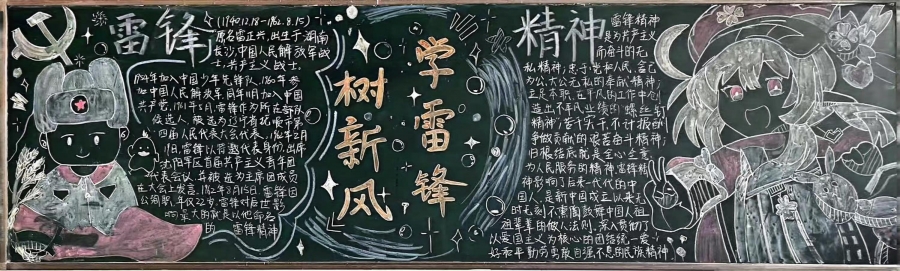 雷锋
(1940.12.18-1962.8.15)
原名雷正兴,出生于湖南
长沙,中国人民解放军战
士,共产主义战士.
1954年加入中国少年先锋队,1960年参
加中国人民解放军,同年11月加入中国
共产党.1961年5月,雷锋作为所在部队
候选人,被选为辽宁省抚顺市第
四届人民代表大会代表.1962年2月
19日,雷锋以特邀代表身份,出席
沈阳军区首届共产主义青年团
代表会议,并被选为主席团成员
在大会上发言.1962年8月15日,雷锋因
公殉职,年仅22岁.雷锋对后世影
响最大的就是以他命名
的 雷锋精神
学雷锋
树新风
精神
雷锋精神
是为共产主义
而奋斗的无
私精神;忠于党和人民、舍己
为公、大公无私的奉献精神;
立足本职、在平凡的工作中创
造出不平凡业绩的"螺丝钉
精神";苦干实干、不计报酬
争做贡献的艰苦奋斗精神;
归根结底就是全心全意
为人民服务的精神.雷锋精
神影响了后来一代一代的中
国人,是新中国成立以来无
时无刻不激励鼓舞中国人祖
祖辈辈的做人法则,深入贯彻了
以爱国主义为核心的团结统一、爱
好和平、勤劳勇敢、自强不息的民族精神.